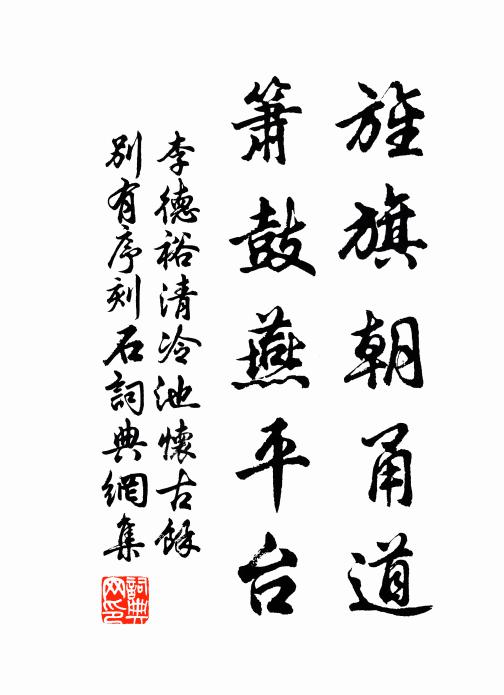 旌旗朝甬道
簫鼓燕平台
李德裕清冷池懷古餘
別有序刻石詞典網集
詞典網印